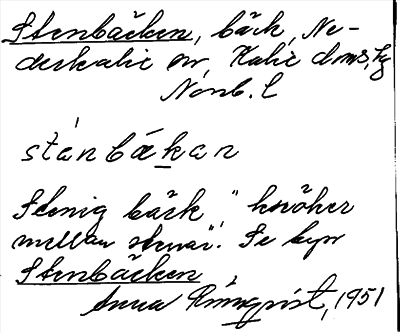 Stenbäcken, bäck, Ne-
derkalix sn. Kalix doms. tg
Norrb. l
stánbäkan
Stenig bäck, "kröker
mellan stenar". Se byn
Stenbäcken.
Anna Rönnqvist, 1951